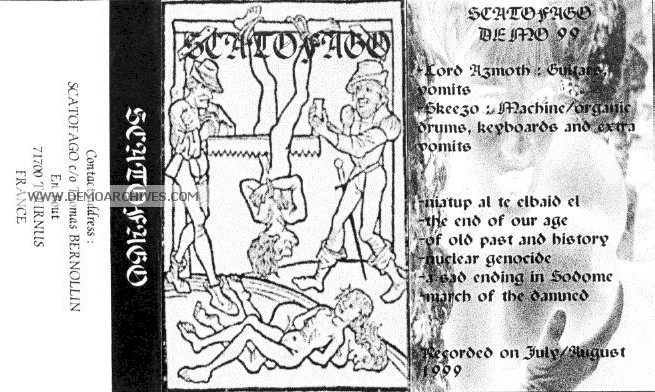 Contact address :
SCATOFAGO c/o Thomas BERNOLLIN
71700 TOURNUS
FRANCE
WWW.DEMOARCHIVES.COM
SCATOFAGO
SCATOFAGO
SCATOFAGO
DEMO 99
-Lord Azmoth : Guitars,
vomits
-Skeezo : Machine/organic
drums, keyboards and extra
vomits
-niatup al te elbaid el
-the end of our age
-of old past and history
-nuclear genocide
-a sad ending in Sodome
-march of the damned
Recorded on July/August
1999